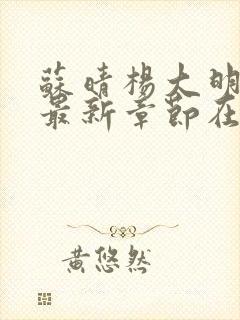 蘇晴楊大明
最新章節在
黃悠然